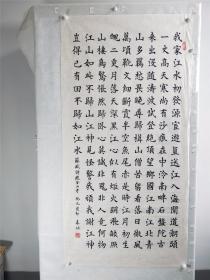 我家江水初發源宦遊直送江入海聞道潮頭
一丈高天寒尚有沙痕在中泠南畔石盤陀古
來出没隨濤波試登絶頂望鄉國江南江北青
山多羈愁畏晚尋歸楫山僧苦留看落日微風
萬頃靴文細斷霞半空魚尾赤是時江月初生
魄二更月落天深黑江心似有炬火明飛焰照
山栖鳥驚悵然歸卧心莫識非鬼非人竟何物
江山如此不歸山江神見怪驚我頑我謝江神
豈得已有田不歸如江水 蘇軾詩